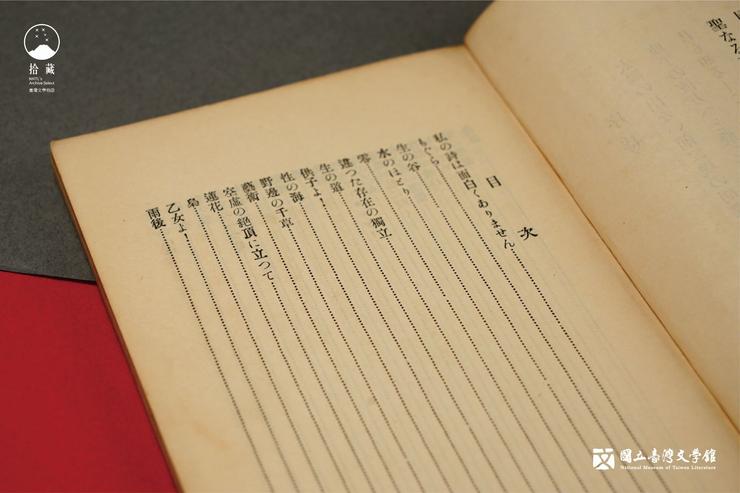 拾藏
NMTL's
Archive Select
臺灣文學物語
聖なる
目次
私の詩は面白くありません
もぐら
生の谷
水のほとり
零
違つた存在の獨立
生の道
供子よ!
性の海
野邊の千草
藝術
空虛の絕頂に立つて
蓮花
梟
乙女よ!
雨後
國立臺灣文學館
National Museum of Taiwan Literature